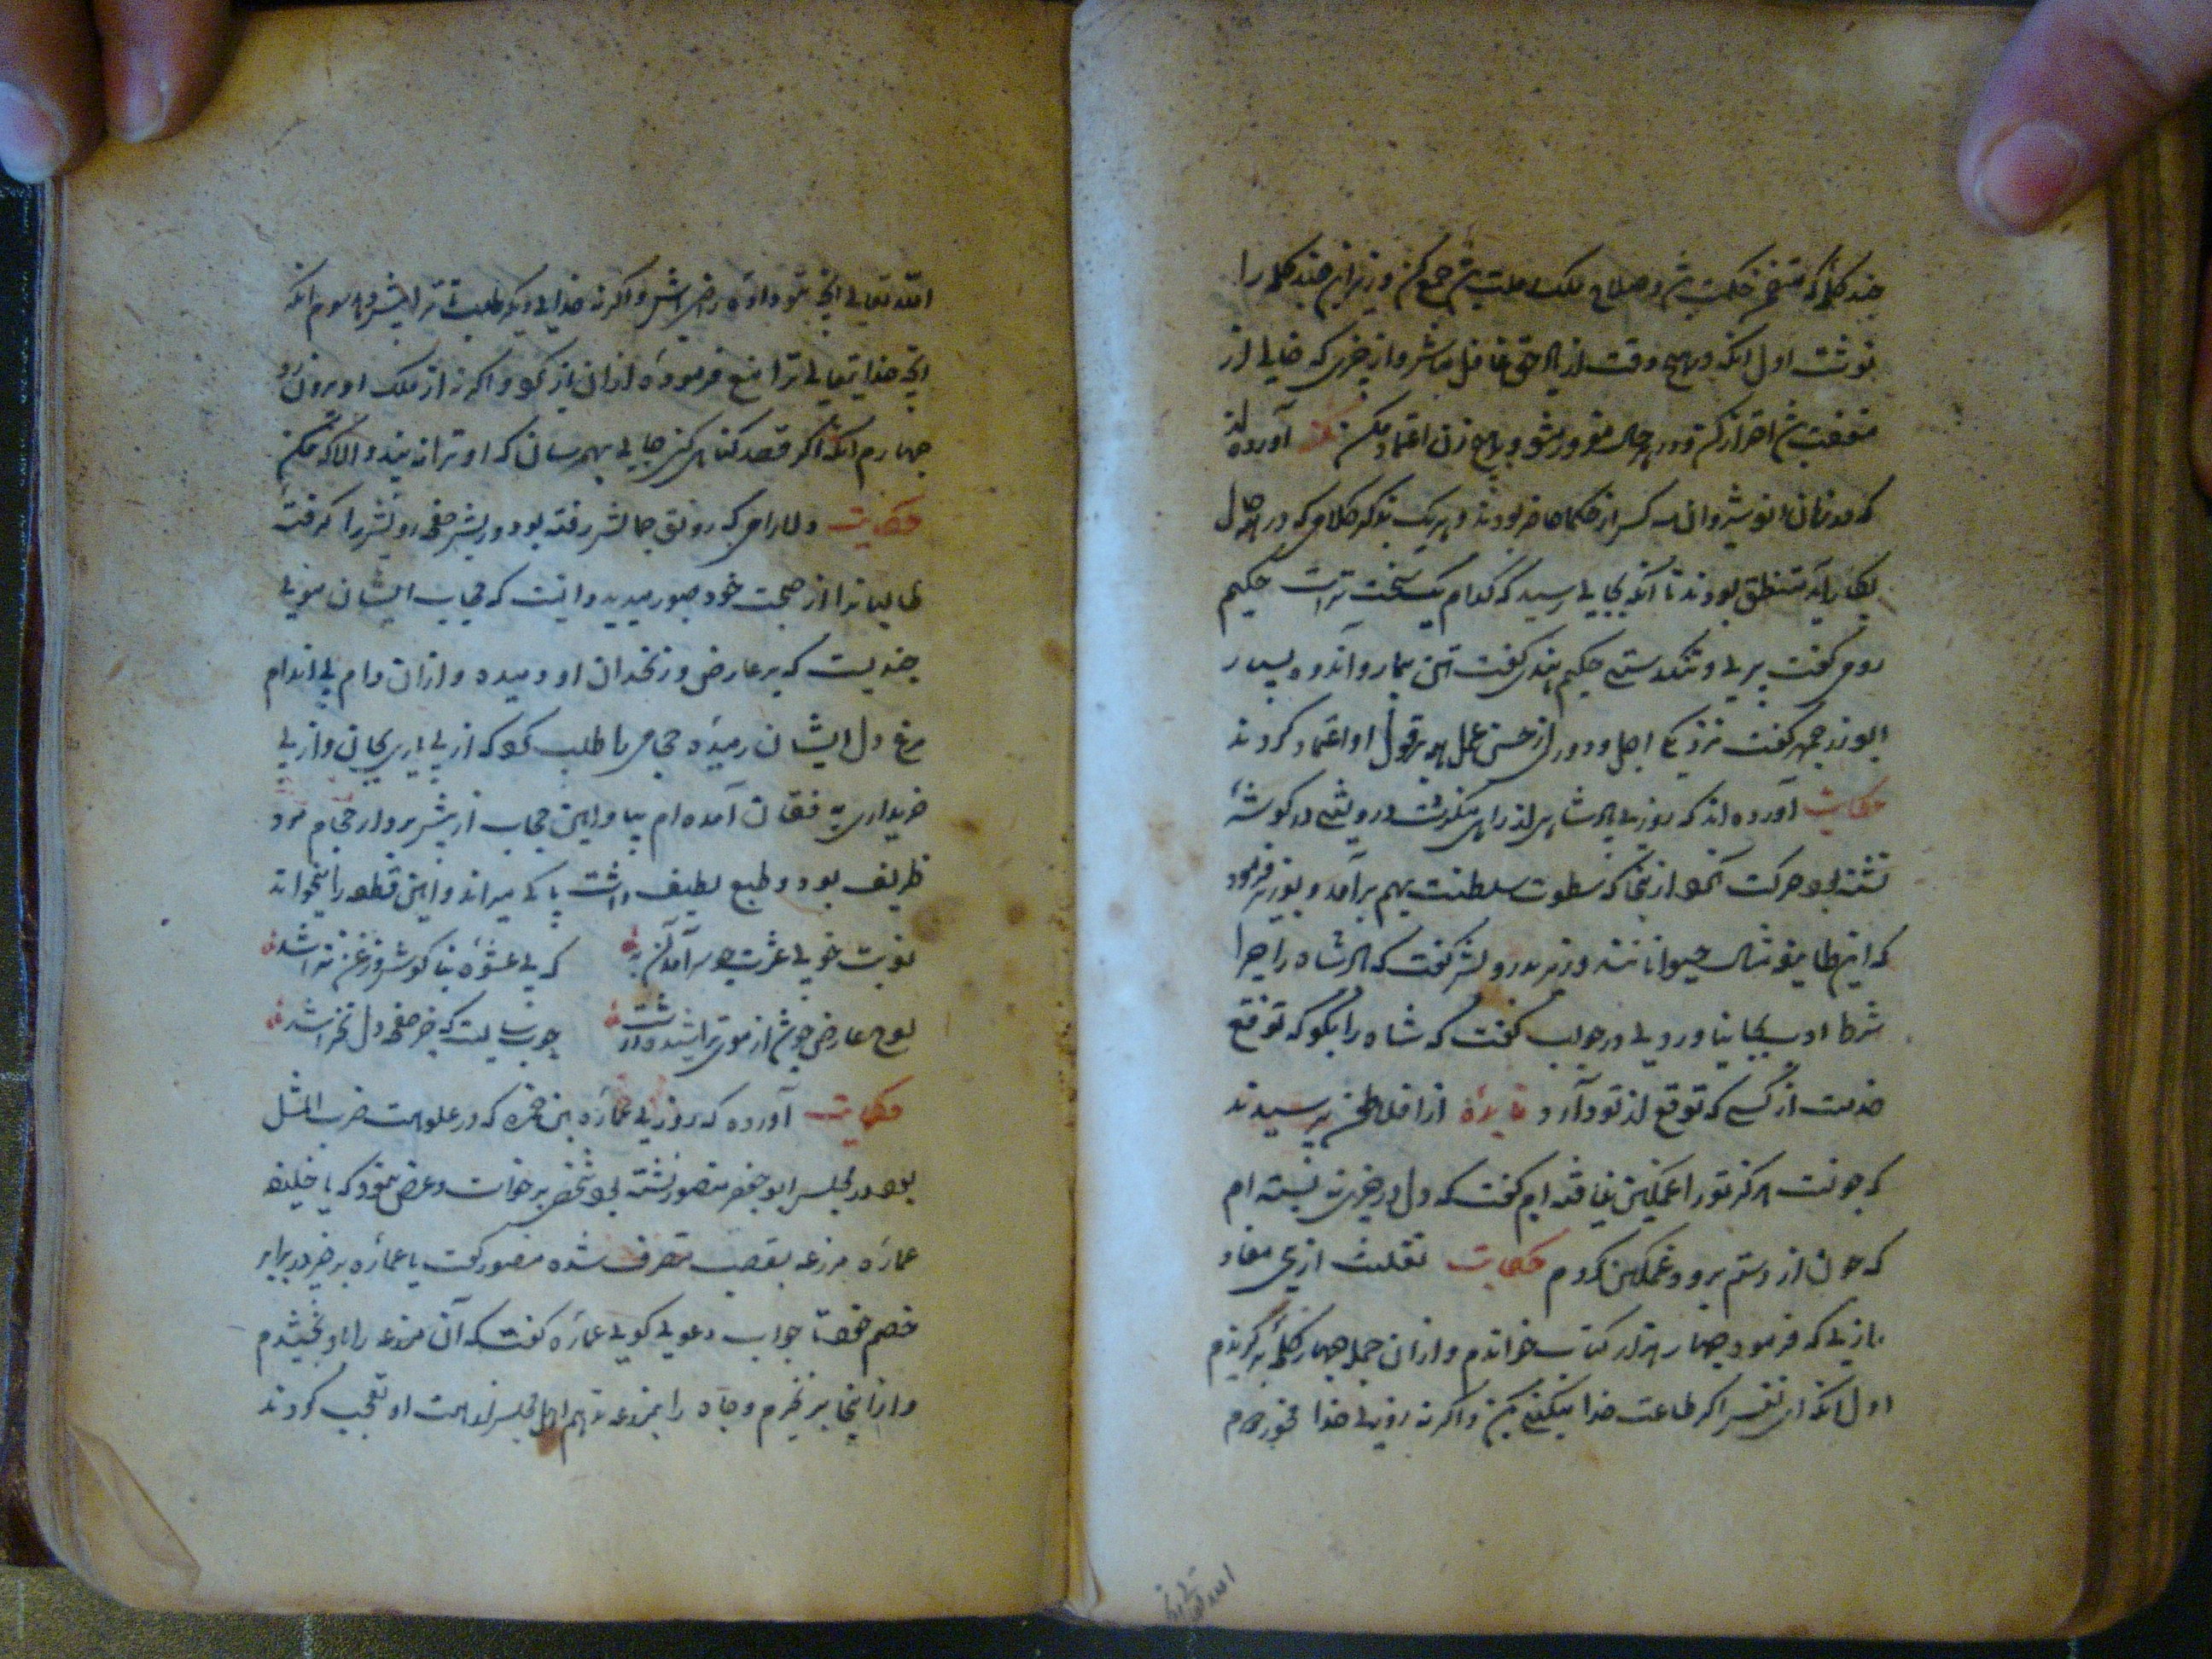 چند کلمه که متضمن حکمت و صلاح ملک و ملت جمع کن وزیر این چند کلمه را
نوشت اول آنکه در هیچ وقت از یاد حق غافل مباش و از چیزی که خالی از
منفعت احتراز کن و در هر حال مغرور مشو و بر هیچ زن اعتماد مکن آورده اند
که در زمان انوشیروان سه کس از حکما حاضر بودند و هر یک بذکر کلامی که در
بکار آید متنطق بودند تا آنکه بجایی رسید که کدام یک سخت ترست حکیم
رومی گفت پیری و تنگدستی حکیم هندی گفت تن بیمار و اندوه بسیار
ابوزرجمهر گفت نزدیکی اجل و دوری از حسن عمل همه بر قول او اعتماد کردند
حکایت آورده اند که روزی پادشاهی از راهی میگذشت درویشی در گوشهٔ
نشسته بود حرکت نکرد از آنجا که سطوت سلطنت بهم برآمد و بوزیر فرمود
که این طایفه مثال حیوانانند وزیر بدرویش گفت که پادشاه را چرا
شرط ادب بجا نیاوردی در جواب گفت که شاه را بگو که توقع
خدمت از کسی که توقع از تو دارد فایده از افلاطون پرسیدند
که چونست هرگز تو را غمگین نیافته ایم گفت که دل بر چیزی نبسته ام
که چون از دستم برود غمگین گردم حکایت نقلست از یحیی معاذ
رازی که فرمود چهار هزار کتاب خواندم و از آن جمله چهار کلمه برگزیدم
اول آنکه ای نفس اگر طاعت خدا میکنی بکن و اگر نه روزی خدا مخور دوم
الله تعالی آنچه
الله تعالی آنچه بتو داده راضی باش و اگر نه خدایی دیگر طلب تا ترا بیشتر دهد سوم آنکه
آنچه خدایتعالی ترا منع فرموده از آن باز گرد و اگر نه از ملک او بیرون رو
چهارم آنکه اگر قصد گناهی کنی جایی بهم رسان که او ترا نه بیند و الا گناه مکن
حکایت دلارامی که رونق جمالش رفته بود و ریش صفحه رویش را گرفته
طالبانرا از صحبت خود نفور میدید دانست که حجاب ایشان مویی
چندیست که بر عارض و زنخدان او دمیده و از آن دام بی اندام
مرغ دل ایشان رمیده حجامی را طلب کرد که از بی یاری بجان و از بی
خریداری بفغان آمده ام بیا و این حجاب از پیش بردار حجام مرد
ظریف بود و طبع لطیف داشت پاکی میراند و این قطعه را میخواند
نوبت خوبی عزت چو سرآمد آن به که بی عشوه بناگوش و زغن نتراشد
لوح عارض چو شد از موی تراشیده درشت چوب سایست که جز صفحه دل نخراشد
حکایت آورده که روزی عماره بن حمزه که در علو همت ضرب المثل
بود در مجلس ابو جعفر منصور نشسته بود شخصی برخواست و عرض نمود که یا خلیفه
عماره مزرعه بغصب متصرف شده منصور گفت یا عماره برخیز و در برابر
خصم خودت جواب دعوی گوی عماره گفت که آن مزرعه را باو بخشیدم
و از اینجا برنخیزم و جاه را بمزرعه ندهم اهل مجلس از همت او تعجب کردند